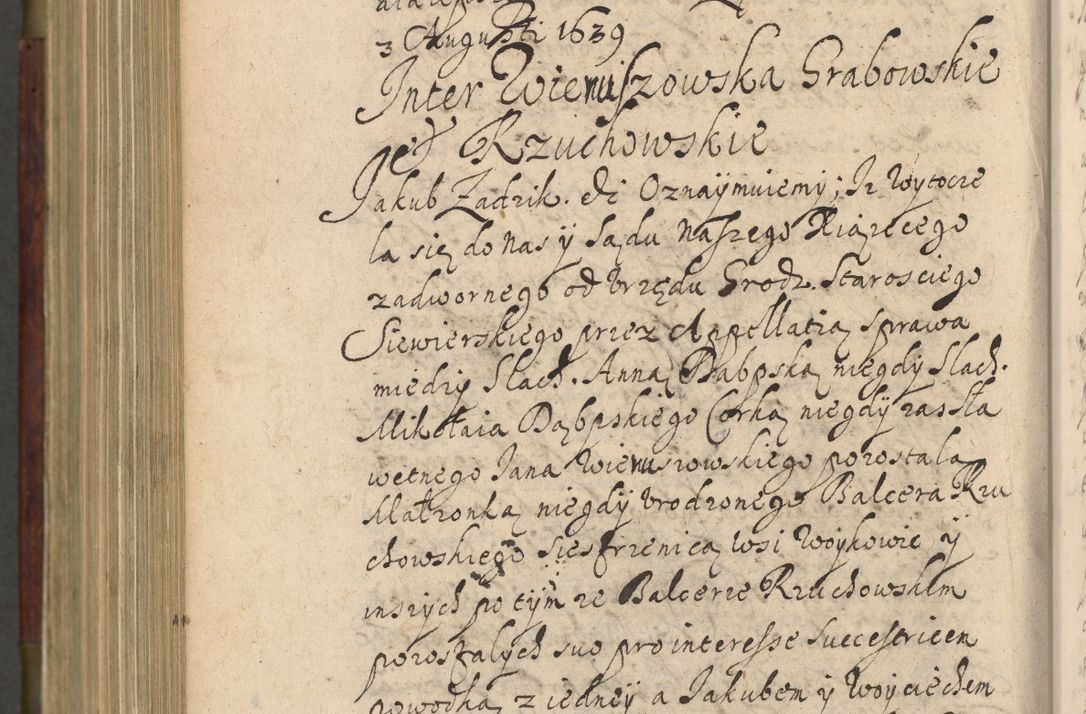 3 Augusti 1639
Inter Wieruszowska Grabowskie
et Rzuchowskie
Jakub Zadzik. etc Oznaÿmuiemÿ; Iz Wÿtocze
la się do nas ÿ Sądu naszego Xiązęcego
zadwornego od Vrzędu Grodz. Starosciego
Siewierskiego przez Appellatią sprawa
miedzÿ Slach. Anną Dąbpską niegdÿ Slach.
Mikołaia Dąbpskiego Corką niegdÿ zas Sła
wetnego Iana Wieruszowskiego pozostałą
Małzonką niegdÿ Vrodzonego Balcera Rzu
chowskiego siestrzenicą wsi Woÿkowic ÿ
inszÿch po tÿm ze Balcerze Rzuchowskim
pozostałÿch suo pro interesse Successricem
powodką z iedneÿ a Jakubem ÿ Woÿciechem